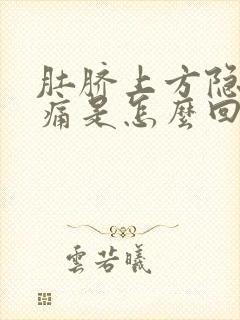 肚脐上方隐
痛是怎麼回
雲若曦